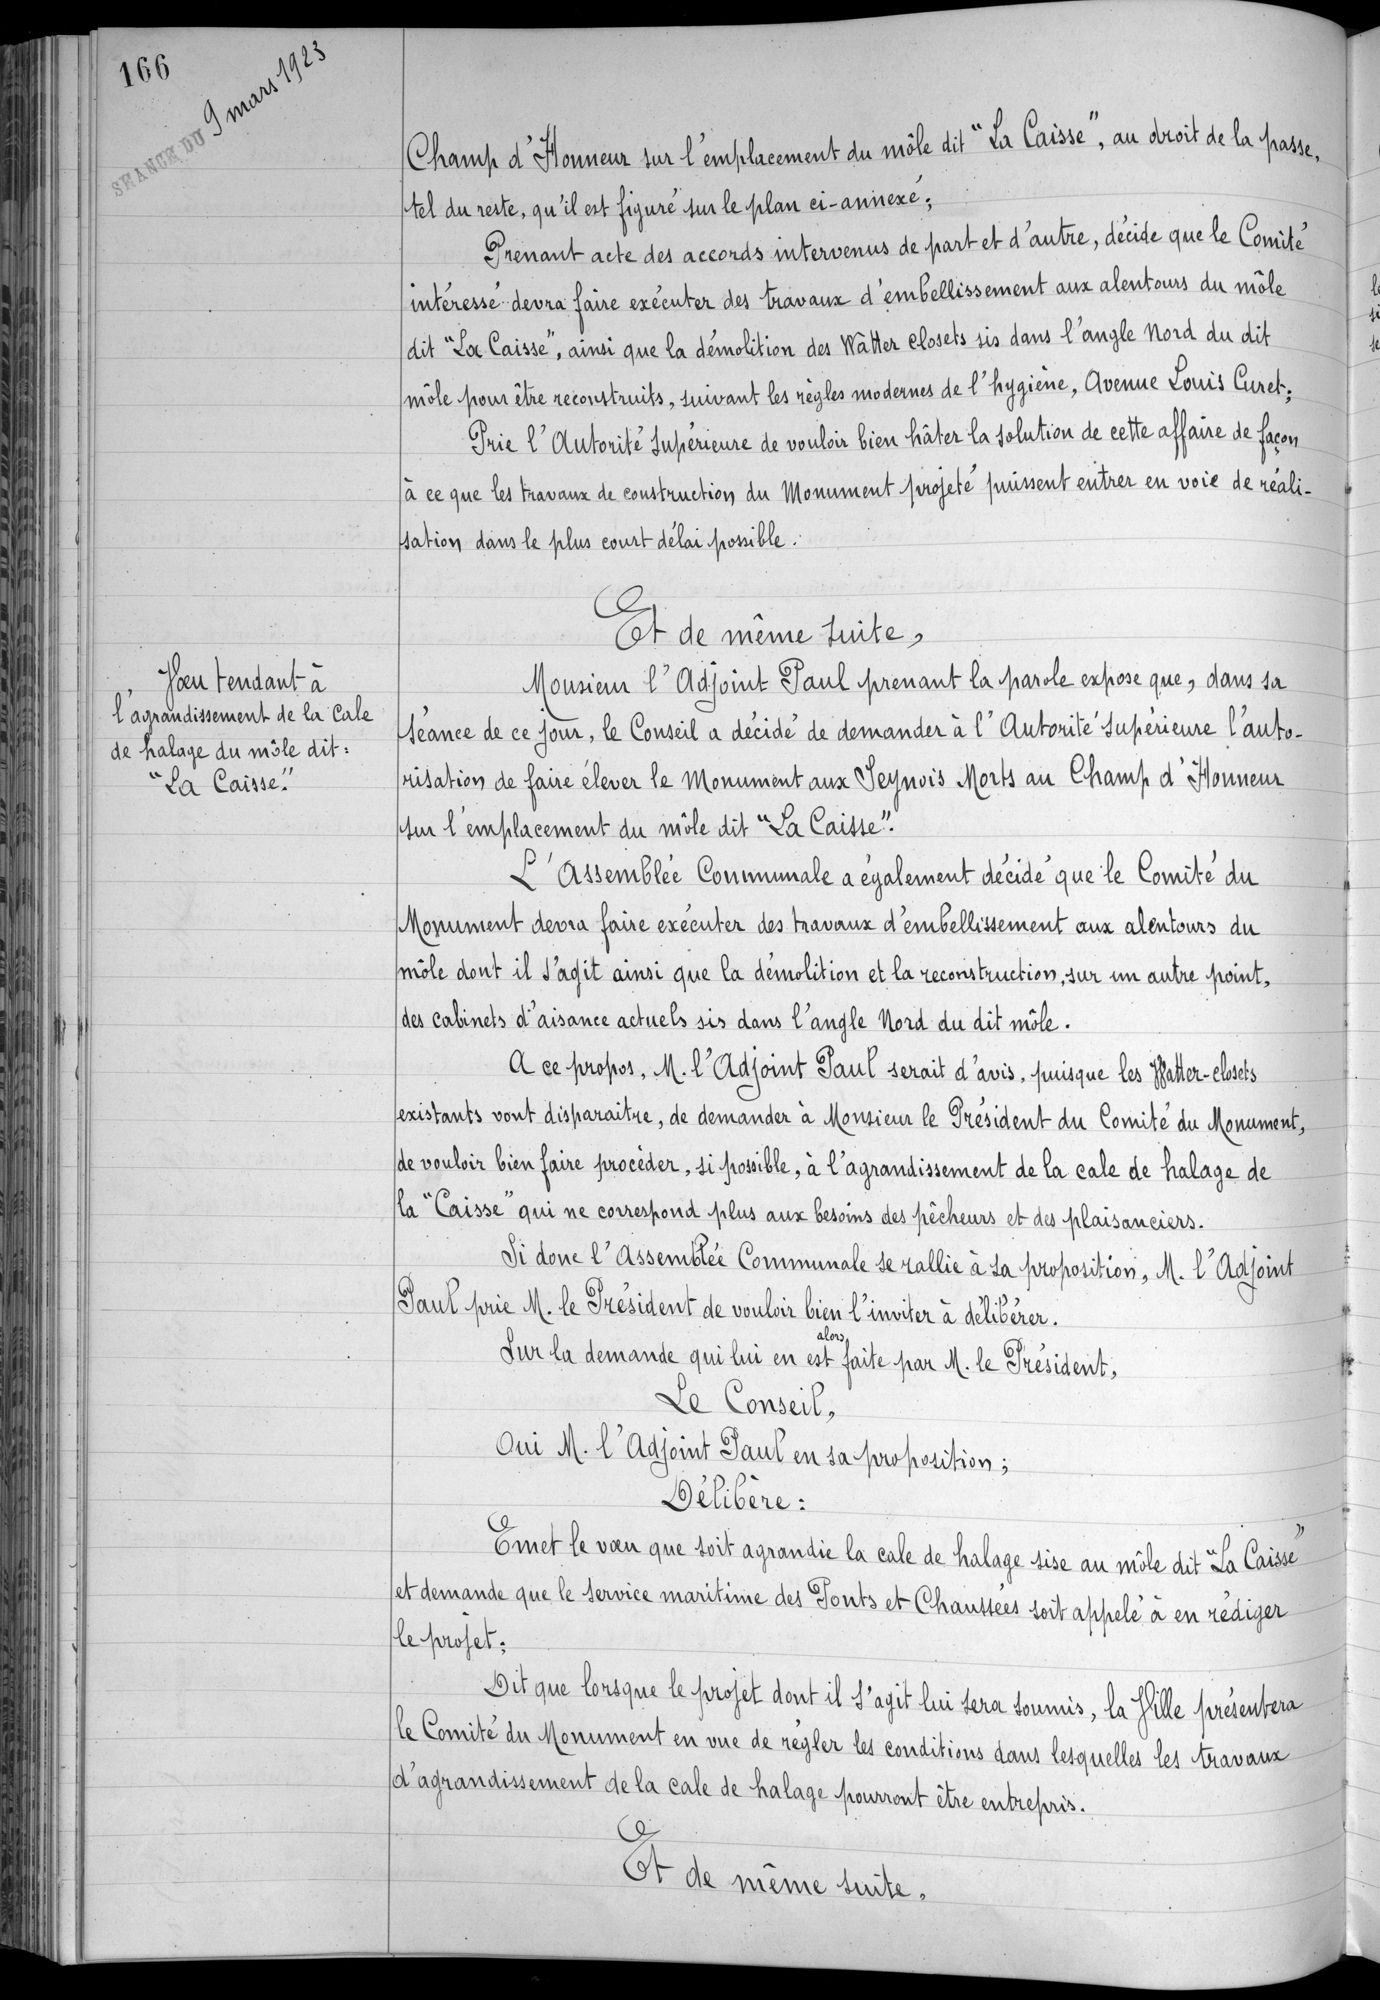 166
SEANCE DU 9 mars 1923
Champ d'Honneur sur l'emplacement du môle dit "La Caisse", au droit de la passe,
tel du reste, qu'il est figuré sur le plan ci-annexé;
Prenant acte des accords intervenus de part et d'autre, décide que le Comité
intéressé devra faire exécuter des travaux d'embellissement aux alentours du môle
dit "La Caisse", ainsi que la démolition des Wâtter closets sis dans l'angle Nord du dit
môle pour être reconstruits, suivant les règles modernes de l'hygiène, Avenue Louis Curet;
Prie l'Autorité Supérieure de vouloir bien hâter la solution de cette affaire de façon
à ce que les travaux de construction du Monument projeté puissent entrer en voie de réali-
sation dans le plus court délai possible.
Et de même suite,
Vœu tendant à
l'agrandissement de la cale
de halage du môle dit:
"La Caisse".
Monsieur l'Adjoint Paul prenant la parole expose que, dans sa
séance de ce jour, le Conseil a décidé de demander à l'Autorité Supérieure l'auto-
risation de faire élever le Monument aux Seynois Morts au Champ d'Honneur
sur l'emplacement du môle dit "La Caisse".
L'Assemblée Communale a également décidé que le Comité du
Monument devra faire exécuter des travaux d'embellissement aux alentours du
môle dont il s'agit ainsi que la démolition et la reconstruction, sur un autre point,
des cabinets d'aisance actuels sis dans l'angle Nord du dit môle.
A ce propos, M. l'Adjoint Paul serait d'avis, puisque les Watter-closets
existants vont disparaitre, de demander à Monsieur le Président du Comité du Monument,
de vouloir bien faire procéder, si possible, à l'agrandissement de la cale de halage de
la "Caisse" qui ne correspond plus aux besoins des pêcheurs et des plaisanciers.
Si donc l'Assemblée Communale se rallie à sa proposition, M. l'Adjoint
Paul prie M. le Président de vouloir bien l'inviter à délibérer.
Sur la demande qui lui en est alors faite par M. le Président,
Le Conseil,
Oui M. l'Adjoint Paul en sa proposition;
Délibère:
Emet le vœu que soit agrandie la cale de halage sise au môle dit "La Caisse"
et demande que le service maritime des Ponts et Chaussées soit appelé à en rédiger
le projet;
Dit que lorsque le projet dont il s'agit lui sera soumis, la Ville présentera
le Comité du Monument en vue de régler les conditions dans lesquelles les travaux
d'agrandissement de la cale de halage pourront être entrepris.
Et de même suite,